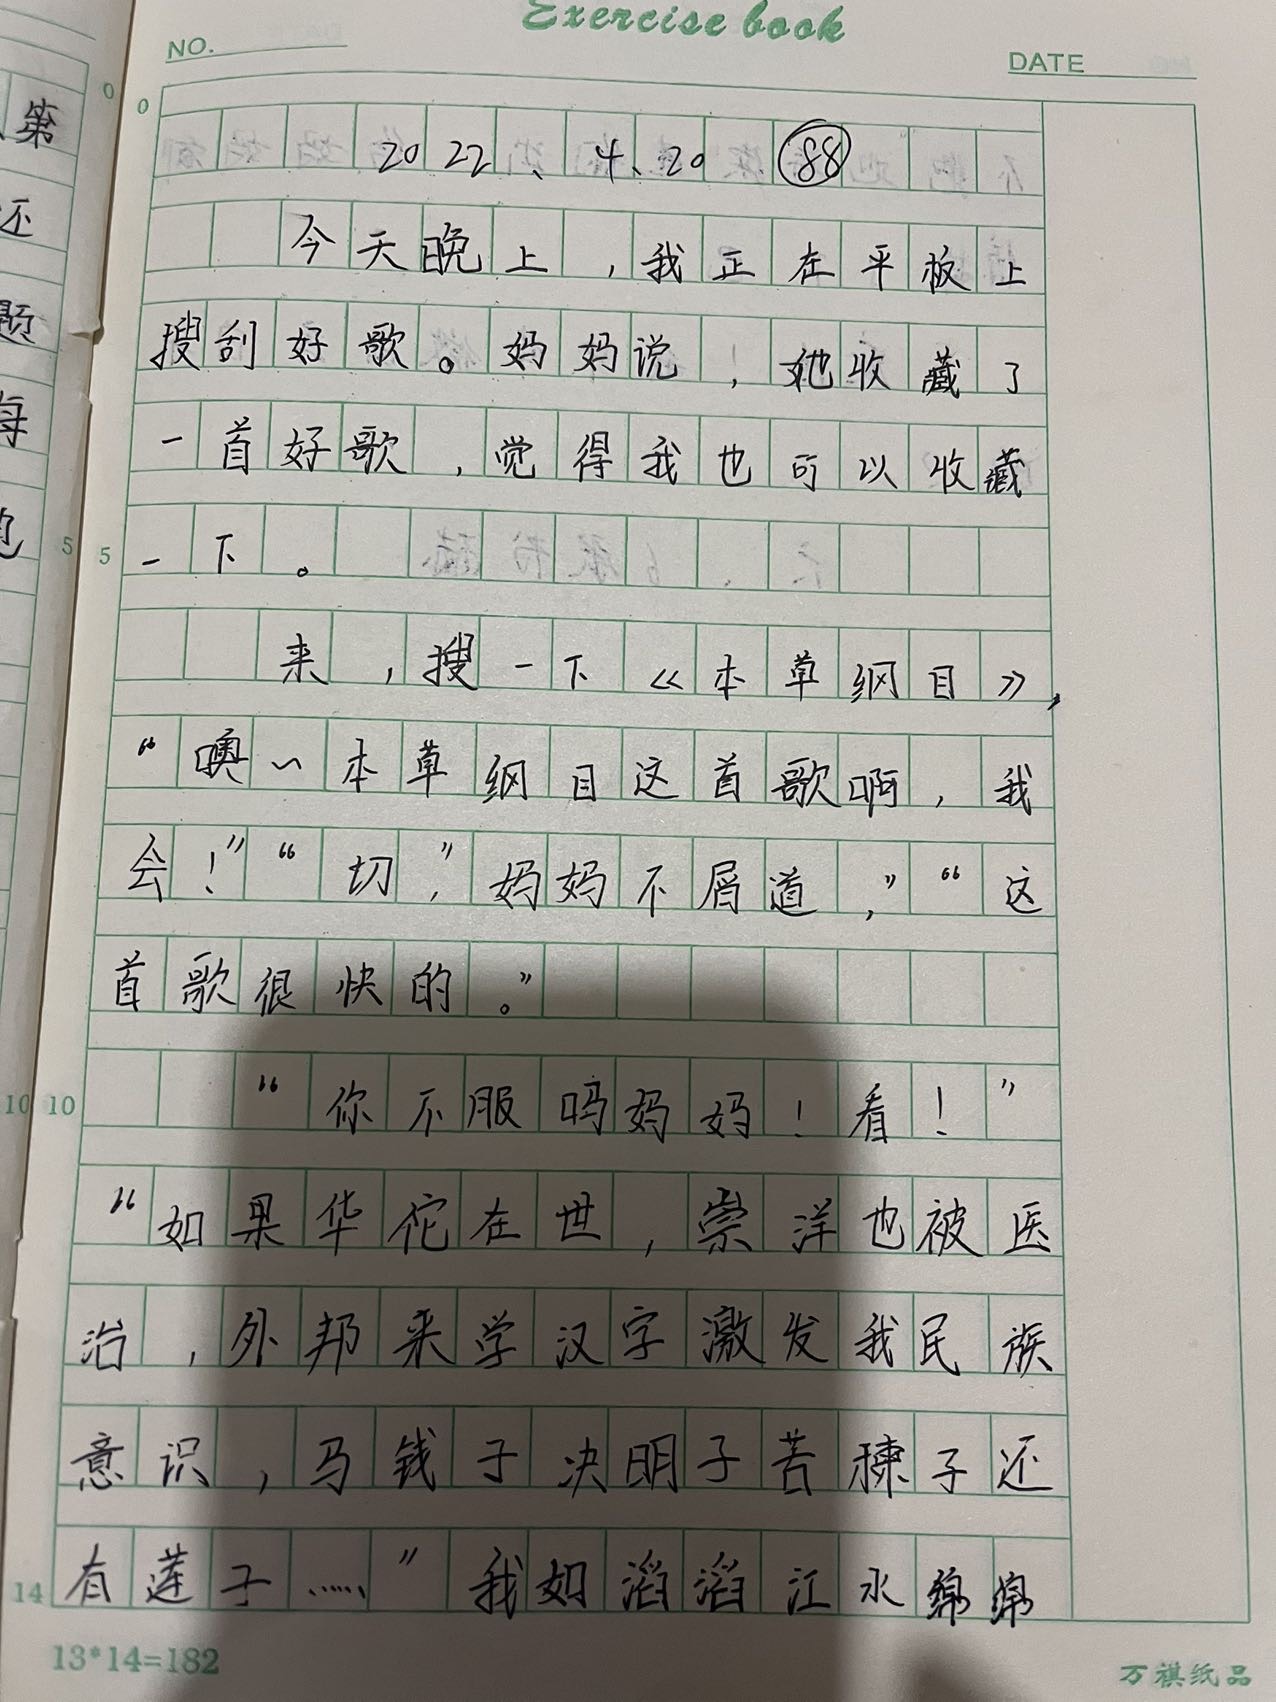 Exercise book
NO.
DATE
2022、4、20 88
今天晚上，我正在平板上
搜刮好歌。妈妈说，她收藏了
一首好歌，觉得我也可以收藏
一下。
来，搜一下《本草纲目》，
“噢～本草纲目这首歌啊，我
会！”“切，”妈妈不屑道，”“这
首歌很快的。”
“你不服吗妈妈！看！”
“如果华佗在世，崇洋也被医
治，外邦来学汉字激发我民族
意识，马钱子决明子苦楝子还
有莲子……”我如滔滔江水绵绵
0
5
10
14
13*14=182
万祺纸品
第
还
题
每
0
5
10